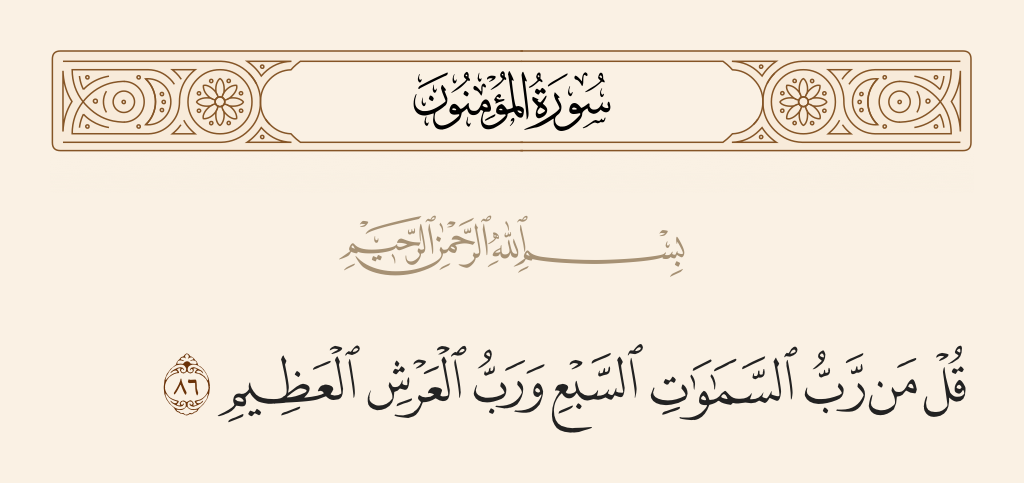 سُورَةُ المُؤْمِنُونَ
بِسْمِ ٱللَّهِ ٱلرَّحْمَٰنِ ٱلرَّحِيمِ
قُلْ مَن رَّبُّ ٱلسَّمَٰوَٰتِ ٱلسَّبْعِ وَرَبُّ ٱلْعَرْشِ ٱلْعَظِيمِ ٨٦